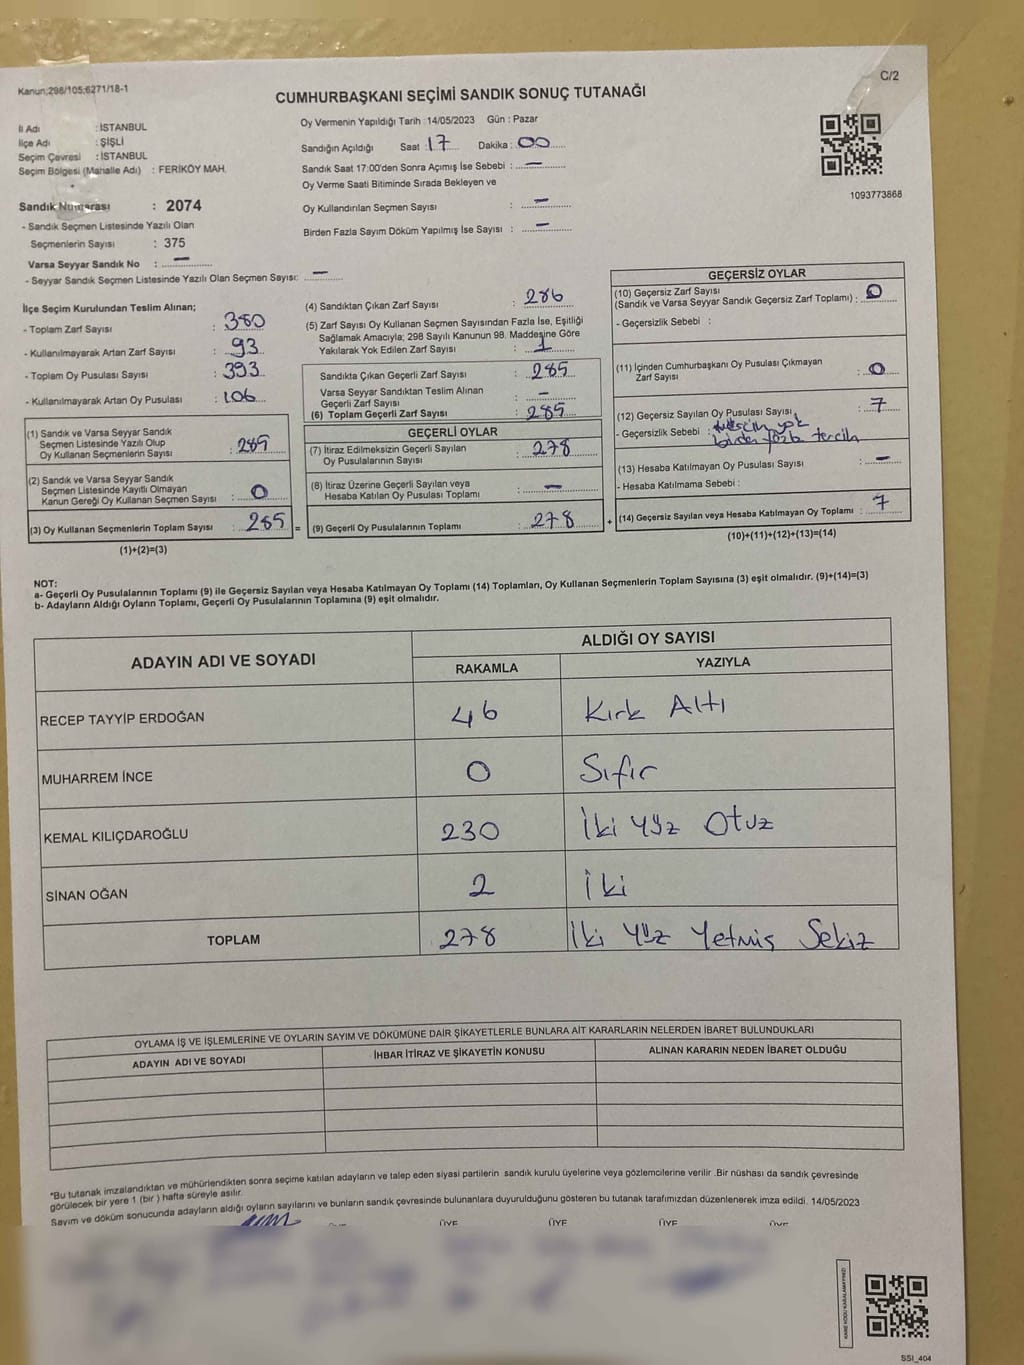 Kanun;298/105;6271/18-1
C/2
CUMHURBAŞKANI SEÇİMİ SANDIK SONUÇ TUTANAĞI
İl Adı : İSTANBUL
İlçe Adı : ŞİŞLİ
Seçim Çevresi : İSTANBUL
Seçim Bölgesi (Mahalle Adı) : FERİKÖY MAH.
Sandık Numarası : 2074
- Sandık Seçmen Listesinde Yazılı Olan
Seçmenlerin Sayısı : 375
Varsa Seyyar Sandık No : —
- Seyyar Sandık Seçmen Listesinde Yazılı Olan Seçmen Sayısı: —
Oy Vermenin Yapıldığı Tarih :14/05/2023 Gün : Pazar
Sandığın Açıldığı Saat : 17 Dakika : 00
Sandık Saat 17:00'den Sonra Açımış İse Sebebi : —
Oy Verme Saati Bitiminde Sırada Bekleyen ve
Oy Kullandırılan Seçmen Sayısı : —
Birden Fazla Sayım Döküm Yapılmış İse Sayısı : —
1093773868
İlçe Seçim Kurulundan Teslim Alınan;
- Toplam Zarf Sayısı : 380
- Kullanılmayarak Artan Zarf Sayısı : 93
- Toplam Oy Pusulası Sayısı : 393
- Kullanılmayarak Artan Oy Pusulası : 106
(1) Sandık ve Varsa Seyyar Sandık
Seçmen Listesinde Yazılı Olup
Oy Kullanan Seçmenlerin Sayısı : 285
(2) Sandık ve Varsa Seyyar Sandık
Seçmen Listesinde Kayıtlı Olmayan
Kanun Gereği Oy Kullanan Seçmen Sayısı : 0
(3) Oy Kullanan Seçmenlerin Toplam Sayısı : 285 =
(1)+(2)=(3)
(4) Sandıktan Çıkan Zarf Sayısı : 286
(5) Zarf Sayısı Oy Kullanan Seçmen Sayısından Fazla İse, Eşitliği
Sağlamak Amacıyla; 298 Sayılı Kanunun 98. Maddesine Göre
Yakılarak Yok Edilen Zarf Sayısı : 1
Sandıkta Çıkan Geçerli Zarf Sayısı : 285
Varsa Seyyar Sandıktan Teslim Alınan
Geçerli Zarf Sayısı : —
(6) Toplam Geçerli Zarf Sayısı : 285
GEÇERLİ OYLAR
(7) İtiraz Edilmeksizin Geçerli Sayılan
Oy Pusulalarının Sayısı : 278
(8) İtiraz Üzerine Geçerli Sayılan veya
Hesaba Katılan Oy Pusulası Toplamı : —
(9) Geçerli Oy Pusulalarının Toplamı : 278 +
GEÇERSİZ OYLAR
(10) Geçersiz Zarf Sayısı
(Sandık ve Varsa Seyyar Sandık Geçersiz Zarf Toplamı) : 0
- Geçersizlik Sebebi :
(11) İçinden Cumhurbaşkanı Oy Pusulası Çıkmayan
Zarf Sayısı : 0
(12) Geçersiz Sayılan Oy Pusulası Sayısı : 7
- Geçersizlik Sebebi : yok
birden fazla tercih
(13) Hesaba Katılmayan Oy Pusulası Sayısı : —
- Hesaba Katılmama Sebebi :
(14) Geçersiz Sayılan veya Hesaba Katılmayan Oy Toplamı : 7
(10)+(11)+(12)+(13)=(14)
NOT:
a- Geçerli Oy Pusulalarının Toplamı (9) ile Geçersiz Sayılan veya Hesaba Katılmayan Oy Toplamı (14) Toplamları, Oy Kullanan Seçmenlerin Toplam Sayısına (3) eşit olmalıdır. (9)+(14)=(3)
b- Adayların Aldığı Oyların Toplamı, Geçerli Oy Pusulalarının Toplamına (9) eşit olmalıdır.
ADAYIN ADI VE SOYADI
ALDIĞI OY SAYISI
RAKAMLA YAZIYLA
RECEP TAYYİP ERDOĞAN 46 Kırk Altı
MUHARREM İNCE 0 Sıfır
KEMAL KILIÇDAROĞLU 230 İki Yüz Otuz
SİNAN OĞAN 2 İki
TOPLAM 278 İki Yüz Yetmiş Sekiz
OYLAMA İŞ VE İŞLEMLERİNE VE OYLARIN SAYIM VE DÖKÜMÜNE DAİR ŞİKAYETLERLE BUNLARA AİT KARARLARIN NELERDEN İBARET BULUNDUKLARI
ADAYIN ADI VE SOYADI İHBAR İTİRAZ VE ŞİKAYETİN KONUSU ALINAN KARARIN NEDEN İBARET OLDUĞU
*Bu tutanak imzalandıktan ve mühürlendikten sonra seçime katılan adayların ve talep eden siyasi partilerin sandık kurulu üyelerine veya gözlemcilerine verilir .Bir nüshası da sandık çevresinde
görülecek bir yere 1 (bir ) hafta süreyle asılır.
Sayım ve döküm sonucunda adayların aldığı oyların sayılarını ve bunların sandık çevresinde bulunanlara duyurulduğunu gösteren bu tutanak tarafımızdan düzenlenerek imza edildi. 14/05/2023
ÜYE ÜYE ÜYE ÜYE
KARE KODU KARALAMAYINIZ!
SSI_404